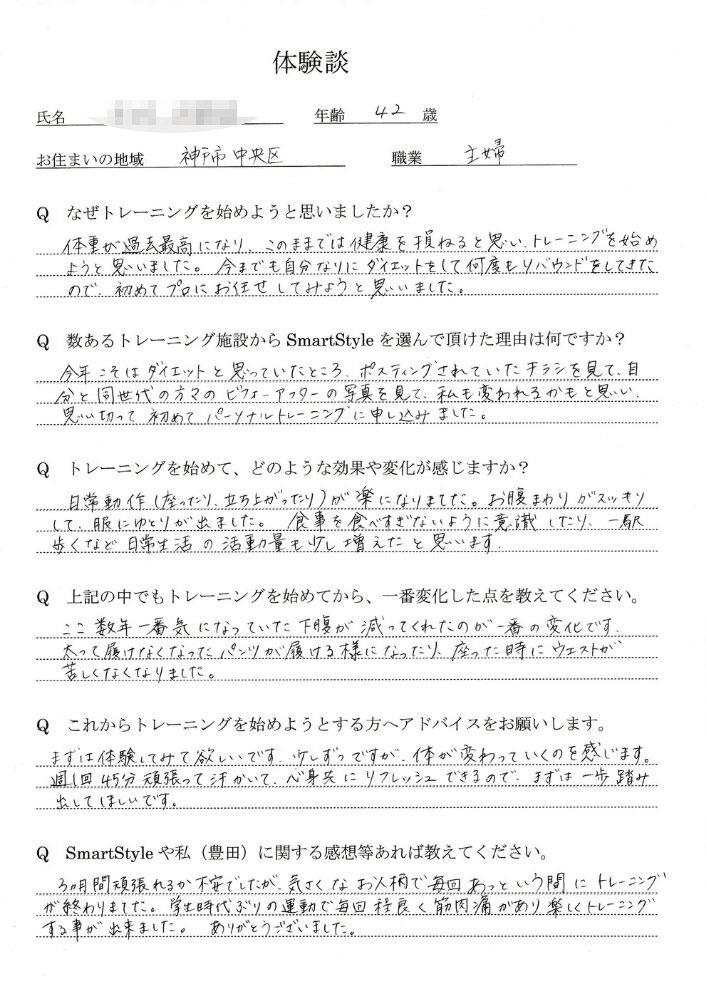 体験談
氏名 年齢 42 歳
お住まいの地域 神戸市中央区 職業 主婦
Q なぜトレーニングを始めようと思いましたか？
体重が過去最高になり、このままでは健康を損ねると思い、トレーニングを始め
ようと思いました。今までも自分なりにダイエットをして何度もリバウンドをしてきた
ので、初めてプロにお任せしてみようと思いました。
Q 数あるトレーニング施設から SmartStyle を選んで頂けた理由は何ですか？
今年こそはダイエットと思っていたところ、ポスティングされていたチラシを見て、自
分と同世代の方々のビフォーアフターの写真を見て、私も変われるかもと思い、
思い切って初めてパーソナルトレーニングに申し込みました。
Q トレーニングを始めて、どのような効果や変化が感じますか？
日常動作(座ったり、立ち上がったり)が楽になりました。お腹まわりがスッキリ
して、服にゆとりが出ました。食事を食べすぎないように意識したり、一駅
歩くなど日常生活の活動量も少し増えたと思います。
Q 上記の中でもトレーニングを始めてから、一番変化した点を教えてください。
ここ数年一番気になっていた下腹が減ってくれたのが一番の変化です。
太って履けなくなったパンツが履ける様になったり、座った時にウエストが
苦しくなくなりました。
Q これからトレーニングを始めようとする方へアドバイスをお願いします。
まずは体験してみて欲しいです。少しずつですが、体が変わっていくのを感じます。
週1回45分頑張って汗かいて、心身共にリフレッシュできるので、まずは一歩踏み
出してほしいです。
Q SmartStyle や私（豊田）に関する感想等あれば教えてください。
3ヵ月間頑張れるか不安でしたが、気さくなお人柄で毎回あっという間にトレーニング
が終わりました。学生時代ぶりの運動で毎回程良く筋肉痛があり楽しくトレーニング
する事が出来ました。ありがとうございました。